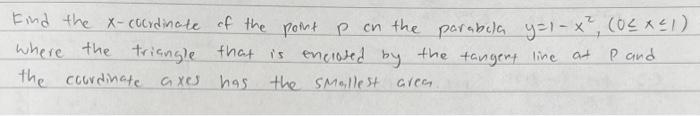 Find the x-coordinate of the point P on the parabola y=1-x², (0≤x≤1)
where the triangle that is enclosed by the tangent line at P and
the coordinate axes has the smallest area.